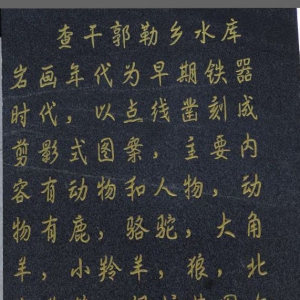 查干郭勒乡水库
岩画年代为早期铁器
时代，以点线凿刻成
剪影式图案，主要内
容有动物和人物，动
物有鹿，骆驼，大角
羊，小羚羊，狼，北